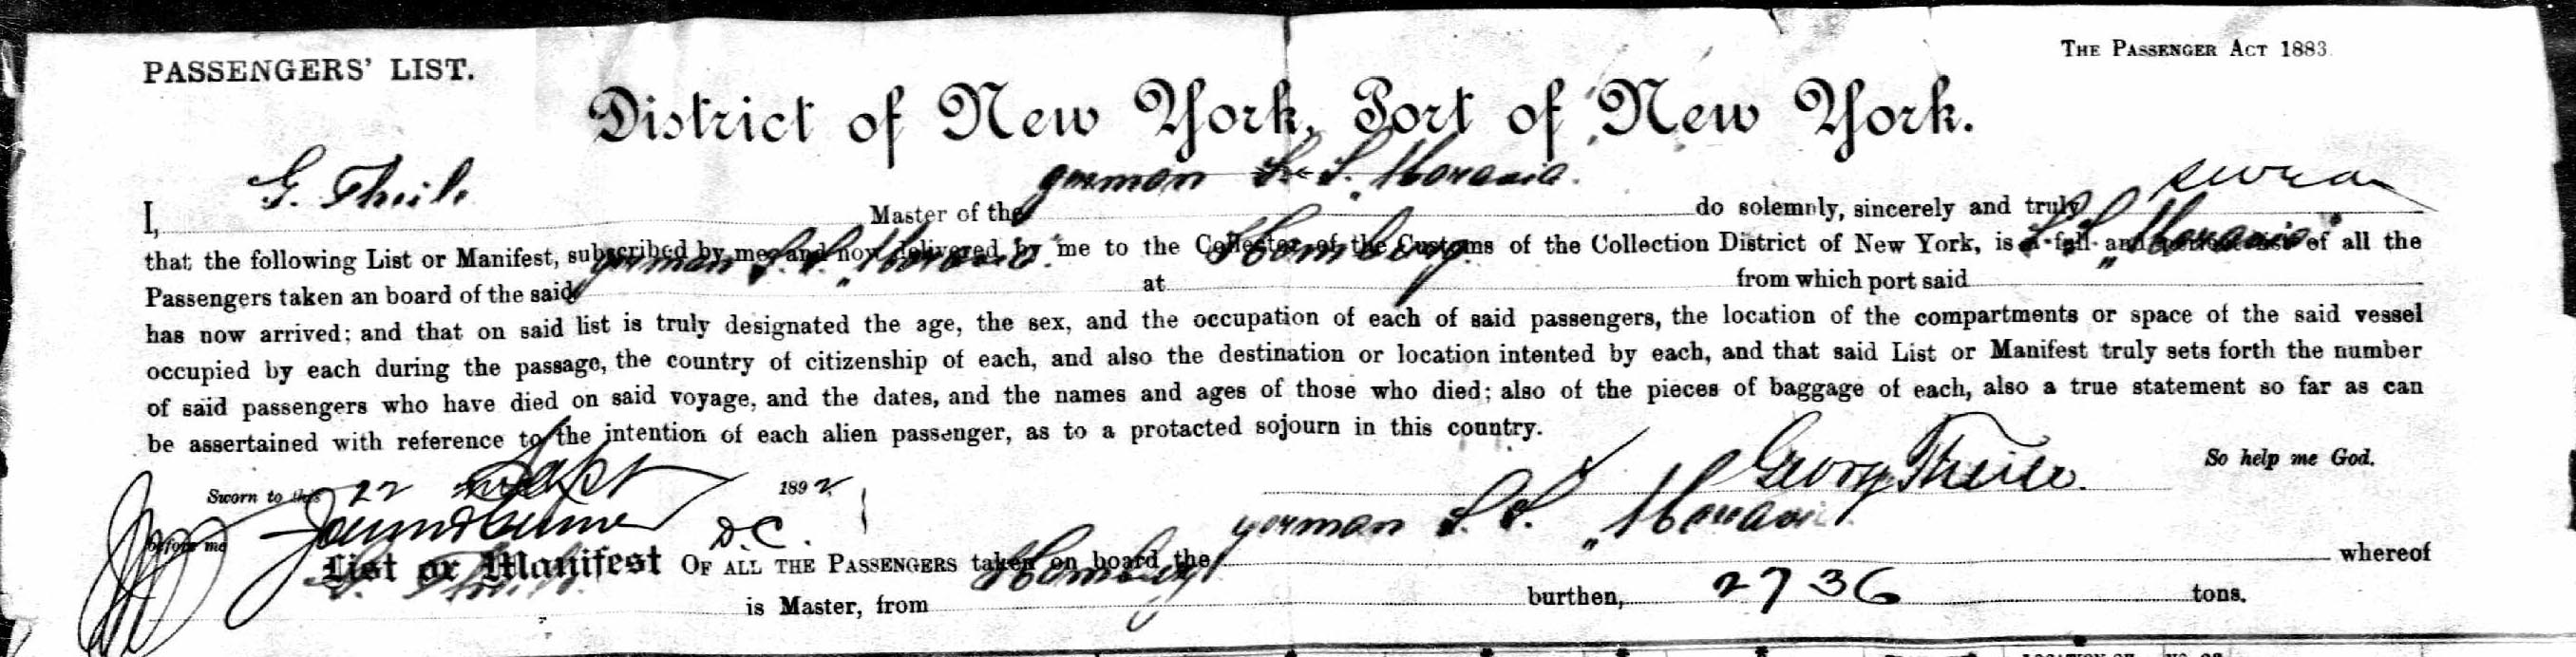 PASSENGERS' LIST.
THE PASSENGER ACT 1883
District of New York, Port of New York.
I, G. Theile Master of the german S. S. „Moravia" do solemnly, sincerely and truly swear
that the following List or Manifest, subscribed by me and now delivered by me to the Collector of the Customs of the Collection District of New York, is a full and of all the
Passengers taken an board of the said german S. S. „Moravia" at Hamburg from which port said S. S. „Moravia"
has now arrived; and that on said list is truly designated the age, the sex, and the occupation of each of said passengers, the location of the compartments or space of the said vessel
occupied by each during the passage, the country of citizenship of each, and also the destination or location intented by each, and that said List or Manifest truly sets forth the number
of said passengers who have died on said voyage, and the dates, and the names and ages of those who died; also of the pieces of baggage of each, also a true statement so far as can
be assertained with reference to the intention of each alien passenger, as to a protacted sojourn in this country.
So help me God.
Sworn to this 22 Sept 1892
Georg Theile.
before me D.C.
List or Manifest OF ALL THE PASSENGERS taken on board the german S. S. „Moravia" whereof
G. Theile is Master, from Hamburg burthen, 2736 tons.